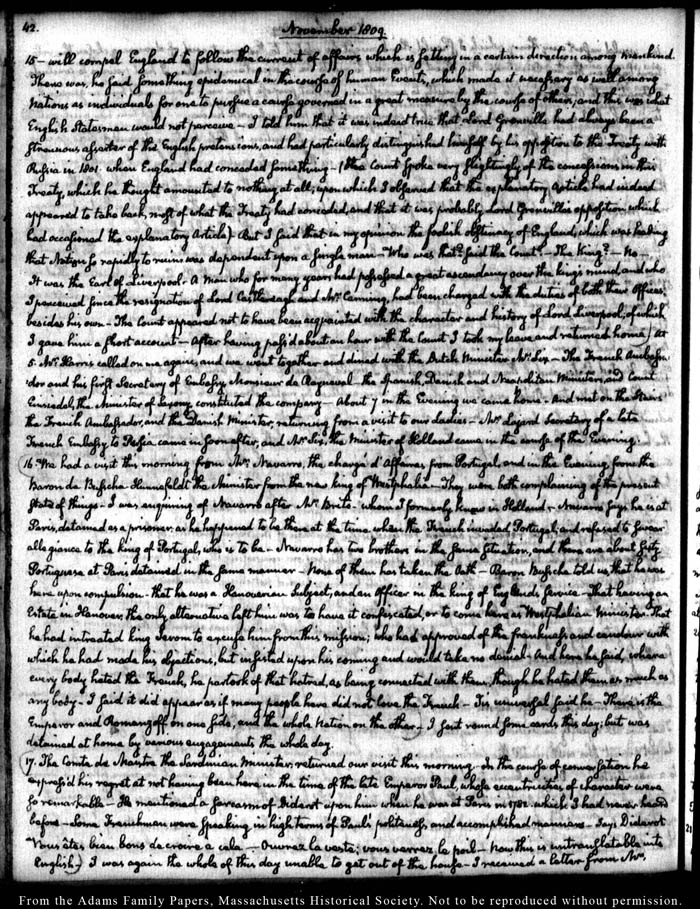 42.
November 1809.
15 — will compel England to follow the current of affairs which is setting in a certain direction among mankind.
There was, he said something epidemical in the course of human Events, which made it necessary as well among
Nations as individuals for one to pursue a course governed in a great measure by the course of others; and this was what
English Statesmen would not perceive — I told him that it was indeed true that Lord Grenville had always been a
strenuous asserter of the English pretensions, and had particularly distinguished himself by his opposition to the Treaty with
Russia in 1801. when England had conceded something — (The Count spoke very slightingly of the concessions in this
Treaty, which he thought amounted to nothing at all; upon which I observed that the explanatory Article had indeed
appeared to take back, most of what the Treaty had conceded, and that it was probably Lord Grenville's opposition which
had occasioned the explanatory Article) But I said that in my opinion the foolish obstinacy of England, which was leading
that Nation so rapidly to ruin was dependent upon a single man — "Who was that? said the Count? — The King? — No —
It was the Earl of Liverpool — A man who for many years had possessed a great ascendancy over the king's mind, and who
I perceived since the resignation of Lord Castlereagh and Mr. Canning, had been charged with the duties of both their Offices,
besides his own — The Count appeared not to have been acquainted with the character and history of Lord Liverpool; of which
I gave him a short account — After having pass'd about an hour with the Count I took my leave and returned home) At
5. Mr. Harris called on me again; and we went together and dined with the Dutch Minister Mr. Six — The French Ambassa-
dor and his first Secretary of Embassy, Monsieur de Rayneval — the Spanish, Danish and Neapolitan Ministers, and Count
Einsiedel, the Minister of Saxony, constituted the company — About 7 in the Evening we came home — And met on the Stairs
the French Ambassador, and the Danish Minister, returning from a visit to our Ladies — Mr. Lajard Secretary of a late
French Embassy to Persia came in soon after, and Mr. Six, the Minister of Holland came in the course of the Evening.
16. We had a visit this morning from Mr. Navarro, the chargé d'Affaires from Portugal, and in the Evening from the
Baron de Bussche-Hunnefeldt the Minister from the new king of Westphalia — They were both complaining of the present
state of things — I was enquiring of Navarro after Mr. Brito — whom I formerly knew in Holland — Navarro says he is at
Paris, detained as a prisoner; as he happened to be there at the time when the French invaded Portugal; and refused to swear
allegiance to the king of Portugal, who is to be — Navarro has two brothers in the same situation, and there are about sixty
Portuguese at Paris detained in the same manner — None of them has taken the Oath — Baron Bussche told us, that he was
here upon compulsion — that he was a Hanoverian Subject, and an Officer in the king of England's service — That having an
Estate in Hanover, the only alternative left him was to have it confiscated, or to come here as Westphalian Minister. That
he had intreated king Jerom to excuse him from this mission; who had approved of the frankness and candour with
which he had made his objections, but insisted upon his coming and would take no denial — And here he said, where
every body hated the French, he partook of that hatred, as being connected with them, though he hated them as much as
any body — I said it did appear as if many people here did not love the French — Tis universal said he — There is the
Emperor and Romanzoff on one side, and the whole Nation on the other — I sent round some cards this day; but was
detained at home by various engagements the whole day.
17. The Comte de Maistre the Sardinian Minister, returned our visit this morning — In the course of conversation he
express'd his regret at not having been here in the time of the late Emperor Paul, whose eccentricities of character were
so remarkable — He mentioned a sarcasm of Diderot upon him when he was at Paris in 1782. which I had never heard
before — Some Frenchmen were speaking in high terms of Paul's politeness, and accomplished manners — Says Diderot
"Vous êtes bien bons de croire a cela — Ouvrez la veste; vous verrez le poil — Now this is untranslatable into
English) I was again the whole of this day unable to get out of the house — I received a letter from Mr.
From the Adams Family Papers, Massachusetts Historical Society. Not to be reproduced without permission.